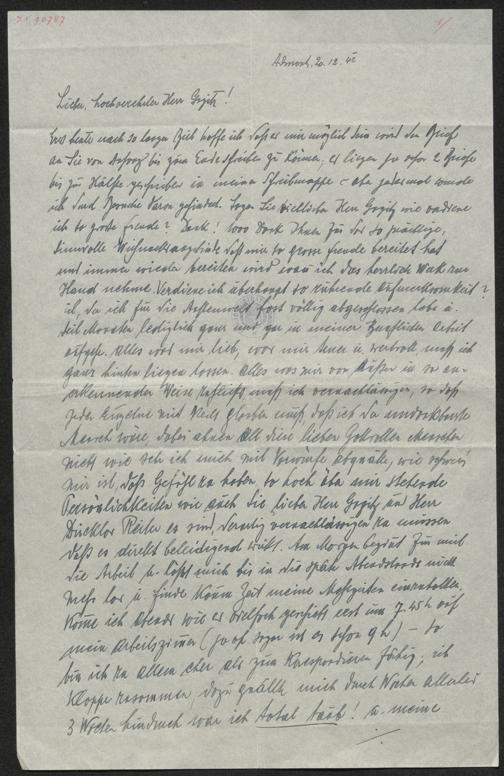 Z.I. 90787
1/
Admont, 20.12.42
Lieber, hochverehrter Herr Gogitz!
Erst heute nach so langer Zeit hoffe ich daß es mir möglich sein wird den Brief
an Sie von Anfang bis zum Ende schreiben zu können, es liegen ja schon 2 Briefe
bis zur Hälfte geschrieben in meiner Schreibmappe – aber jedesmal wurde
ich und Sprache daran gehindert. Sagen Sie Herr Gogitz wie verdiene
ich so große Freude? Dank! 1000 Dank Ihnen zu der so prächtige,
sinnvolle Weihnachtsangebinde daß mir so grosse Freude bereitet hat
und immer wieder bereiten wird wenn ich das herrliche Werk zur
Hand nehme. Verdiene ich überhaupt so rührende Aufmerksamkeit?
ich, da ich für die Außenwelt fast völlig abgeschlossen lebe u.
seit Monaten lediglich ganz und gar in meiner Arbeit
aufgehe. Alles was mir lieb, was mir teuer u. wertvoll, muß ich
ganz hinten liegen lassen. Alles was mir von Außen in so an-
erkennender Weise zufließt muß ich vernachlässigen, so daß
jeder Einzelne mit Recht glauben muß, daß ich der undankbarste
Mensch wäre, dabei ahnen all diese lieben Menschen
nicht wie sehr ich mich mit Vorwürfe abquäle, wie schwer
mir ist, das Gefühl zu haben so hoch über mir stehende
Persönlichkeiten wie auch Sie lieber Herr Gogitz, und Herr
Direktor Reiter es sind, derartig vernachlässigen zu müssen
daß es direkt beleidigend wirkt. Am Morgen beginnt für mich
die Arbeit u. läßt mich bis in die späte Abendstunde nicht
mehr los u. finde kaum Zeit meine Mahlzeiten einzuhalten,
Komme ich Abends wie es vielfach geschieht erst um 7.45 h auf
mein Arbeitszimmer (ja oft sogar ist es schon 9 h) – so
bin ich zu allem eher als zum Korrespondieren fähig; ich
klappe zusammen, dazu gesellte mich durch Wochen allerlei
3 Wochen hindurch war ich total taub! u. meine